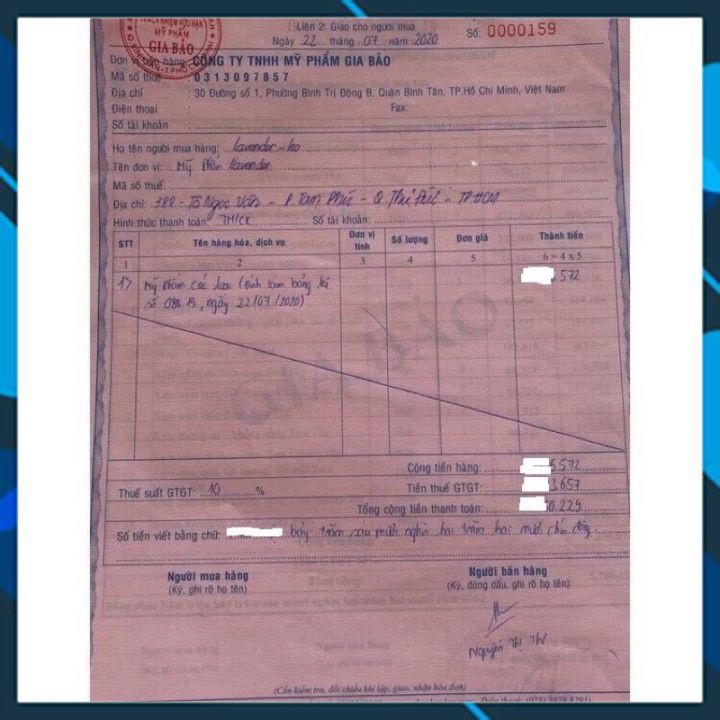 TRÁCH NHIỆM HỮU HẠN
MỸ PHẨM
GIA BẢO
Liên 2: Giao cho người mua
Ngày 22 tháng 07 năm 2020
Số: 0000159
Đơn vị bán hàng: CÔNG TY TNHH MỸ PHẨM GIA BẢO
Mã số thuế : 0313097857
Địa chỉ : 30 Đường số 1, Phường Bình Trị Đông B, Quận Bình Tân, TP.Hồ Chí Minh, Việt Nam
Điện thoại : Fax:
Số tài khoản :
Họ tên người mua hàng: Lavender - leo
Tên đơn vị: Mỹ Phẩm Lavender
Mã số thuế:
Địa chỉ: 388 - Tô Ngọc Vân - P. Tam Phú - Q. Thủ Đức - TP HCM
Hình thức thanh toán: TM/CK Số tài khoản:
STT Tên hàng hóa, dịch vụ Đơn vị tính Số lượng Đơn giá Thành tiền
1 2 3 4 5 6 = 4 x 5
1) Mỹ phẩm các loại (Đính kèm bảng kê .572
số 088.15, ngày 22/07/2020)
GIA BẢO
Cộng tiền hàng: 5.572
Thuế suất GTGT: 10 % Tiền thuế GTGT: 3.657
Tổng cộng tiền thanh toán: 0.229
Số tiền viết bằng chữ: bảy trăm sáu mươi nghìn hai trăm hai mươi chín đồng
Người mua hàng Người bán hàng
(Ký, ghi rõ họ tên) (Ký, đóng dấu, ghi rõ họ tên)
Nguyễn Thị Thu
(Cần kiểm tra, đối chiếu khi lập, giao, nhận hóa đơn)